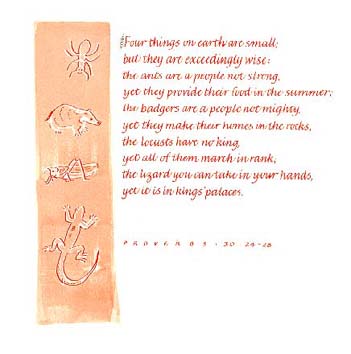 Four things on earth are small;
but they are exceedingly wise:
the ants are a people not strong,
yet they provide their food in the summer;
the badgers are a people not mighty,
yet they make their homes in the rocks,
the locusts have no king,
yet all of them march in rank,
the lizard you can take in your hands,
yet it is in kings' palaces.
PROVERBS · 30 24-28